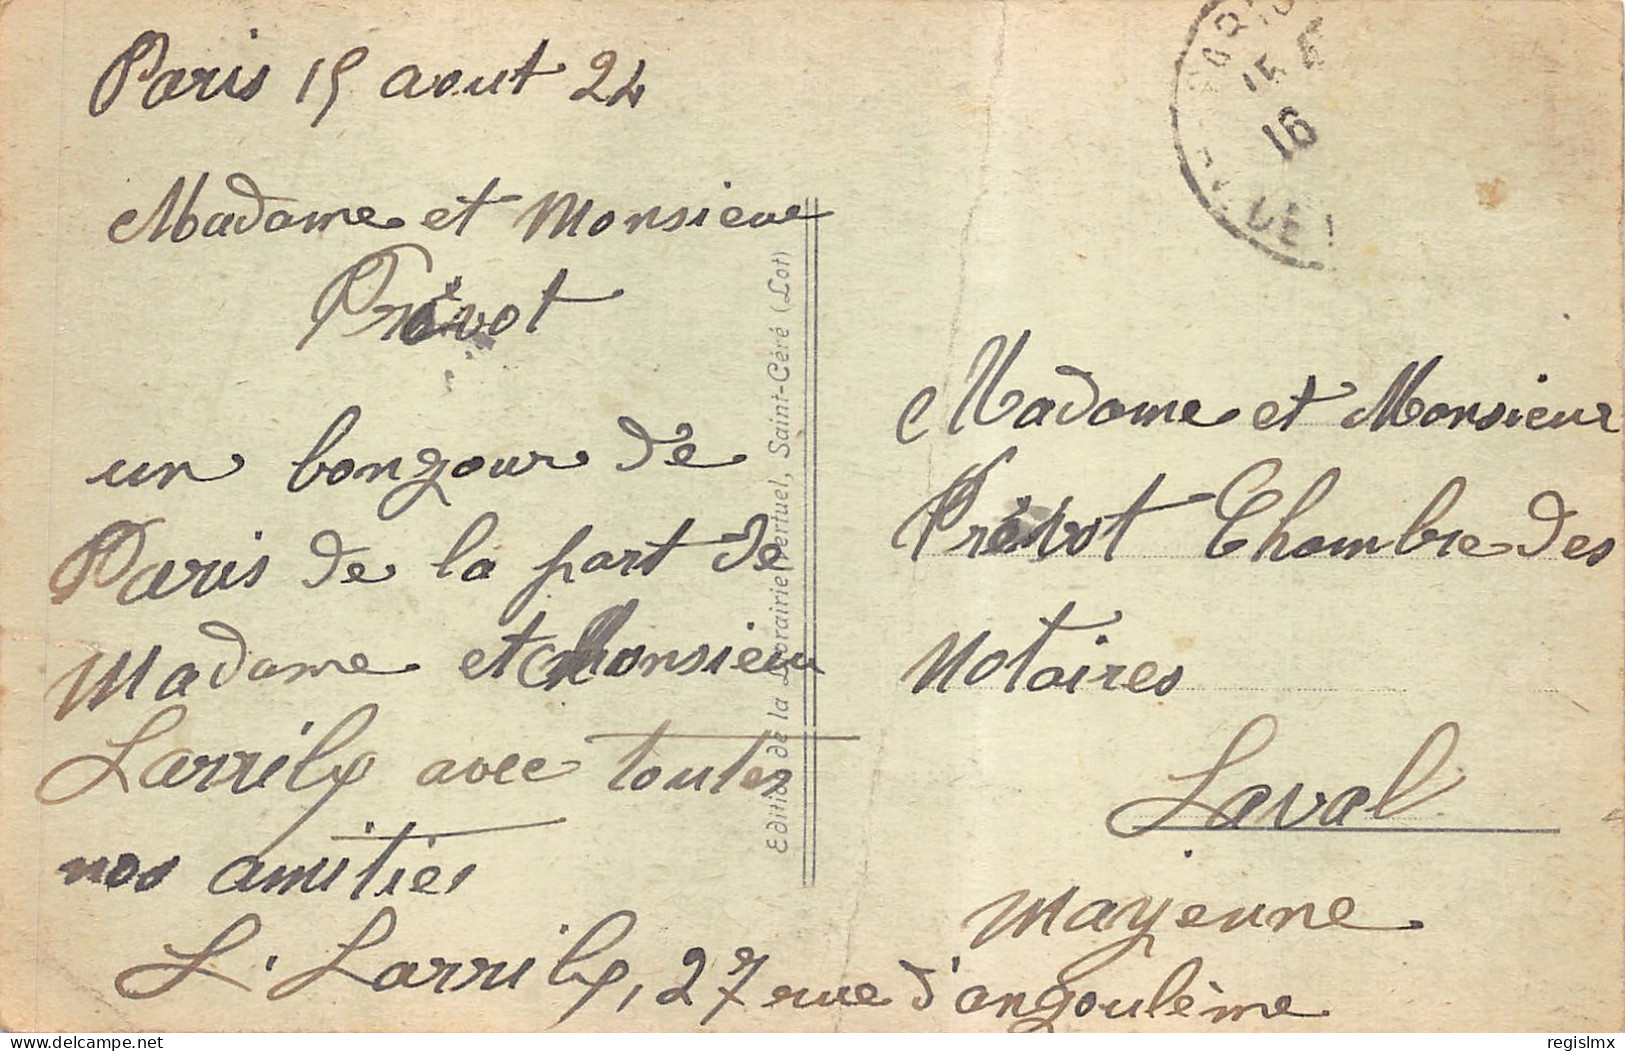 Paris 15 aout 24
Madame et Monsieur
Prévot
un bongour de
Paris de la part de
Madame et Monsieur
Larrily avec toutes
nos amitiés
L. Larrily, 27 rue d'angoulême
Edition de la Librairie Vertuel, Saint-Céré (Lot)
PARIS
15
16
DE
Madame et Monsieur
Prévot Chambre des
Notaires
Laval
Mayenne
regislmx